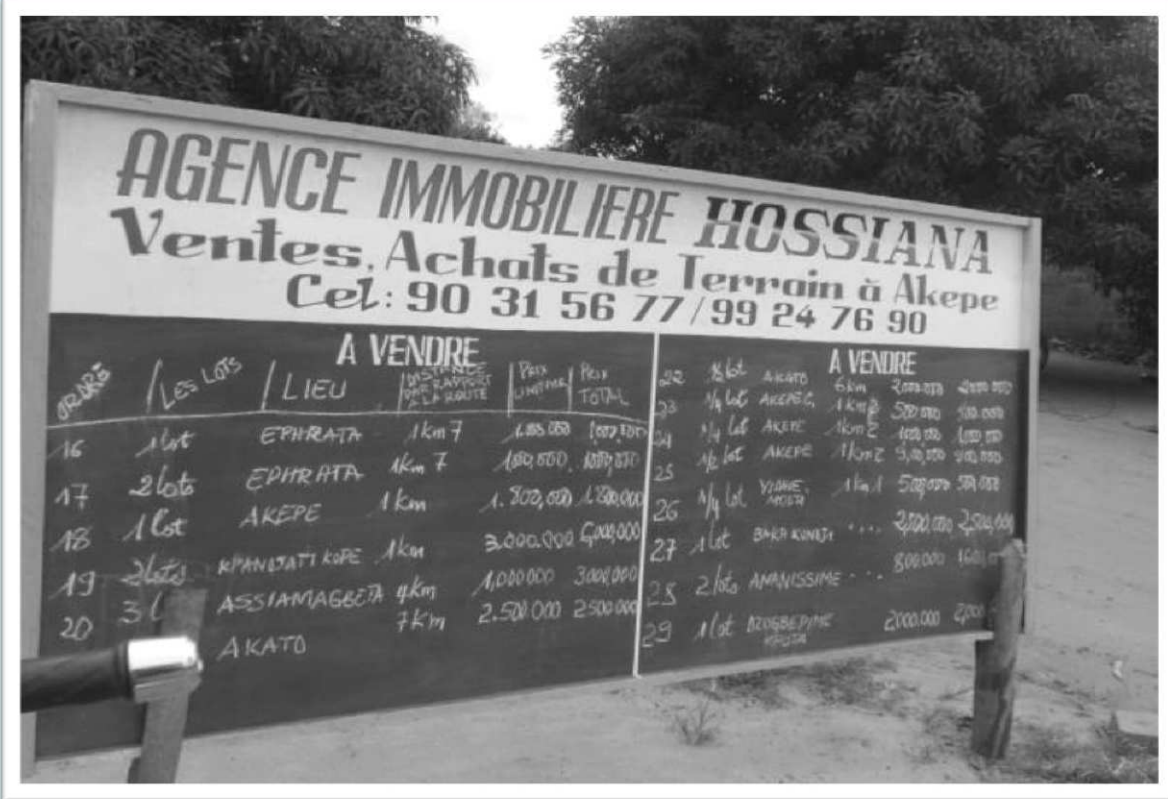 AGENCE IMMOBILIERE HOSSIANA
Ventes, Achats de Terrain à Akepe
Cel: 90 31 56 77 / 99 24 76 90
A VENDRE
ORDRE LES LOTS LIEU DISTANCE PAR RAPPORT A LA ROUTE PRIX UNITAIRE PRIX TOTAL
16 1 lot EPHRATA 1km7
17 2 lots EPHRATA 1km7
18 1 lot AKEPE 1km 1.800,000 1.800,000
19 2 lots KPANDJATI KOPE 1km 3.000.000 6,000,000
20 3 ASSIAMAGBETA 4km 1,000000 3000,000
AKATO 7km 2.500.000 2500,000
A VENDRE
22 AKATO 6km 2000.000 2000.000
23 1/4 lot AKEPE 1km 500.000 500.000
24 1/4 lot AKEPE 1km2
25 1/2 lot AKEPE 1km2
26 1/4 lot 1km1 500,000 500,000
27 1 lot BAKA KONDJI .... 2,500,000 2,500,000
28 2 lots ANANISSIME ... 800,000
29 1 lot DZOGBEPIME 2000.000